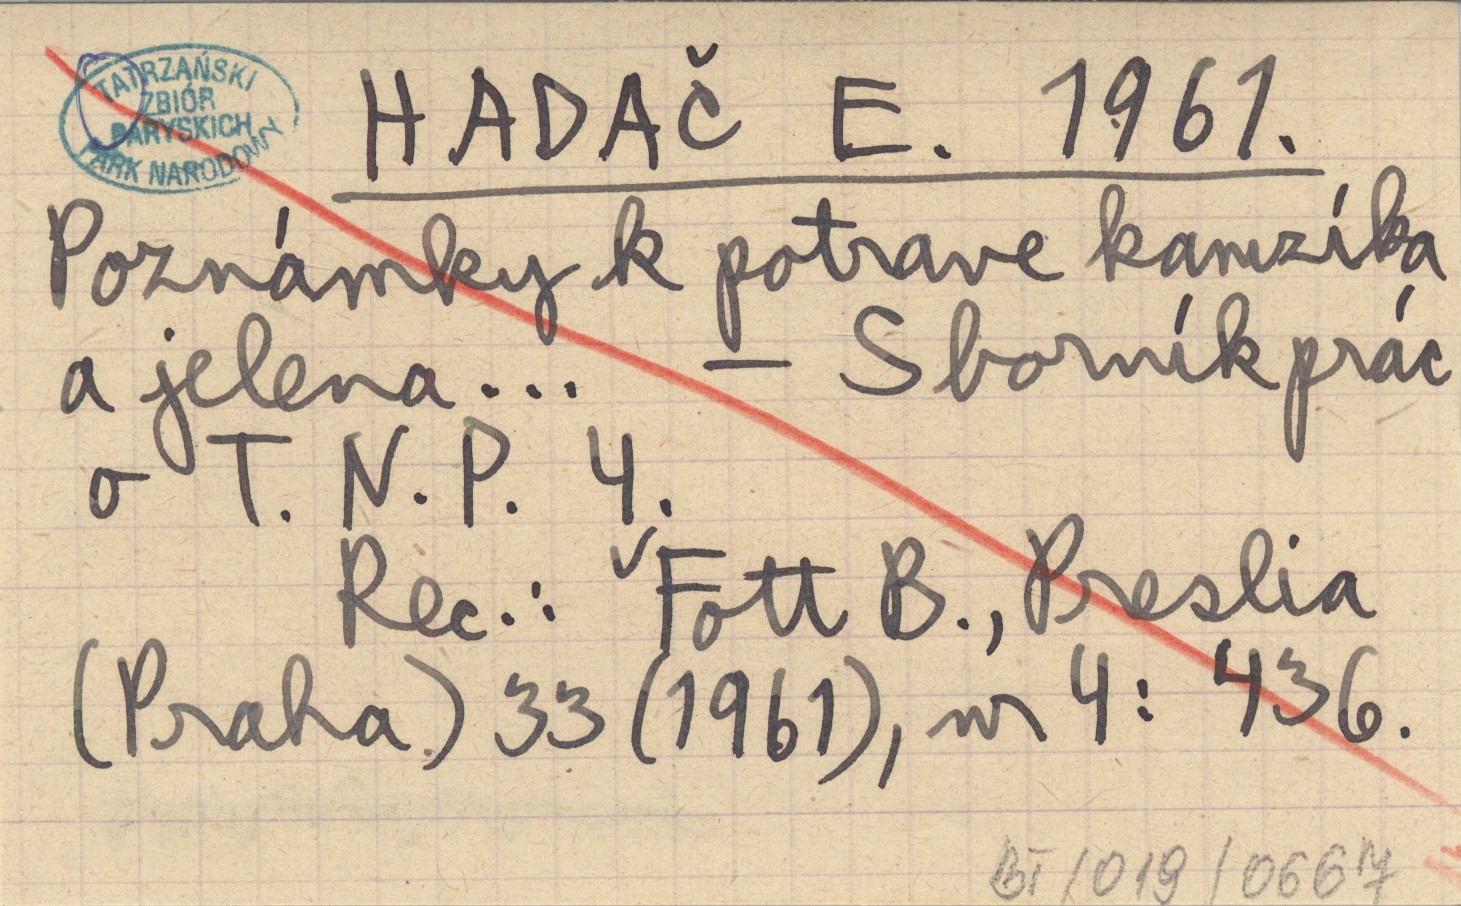 TATRZAŃSKI
ZBIÓR
PARYSKICH
PARK NARODOWY
HADAČ E. 1961.
Poznámky k potrave kamzíka
a jelena... — Sborník prác
o T. N. P. 4.
Rec.: Fott B., Preslia
(Praha) 33 (1961), nr 4: 436.
BT/019/0667